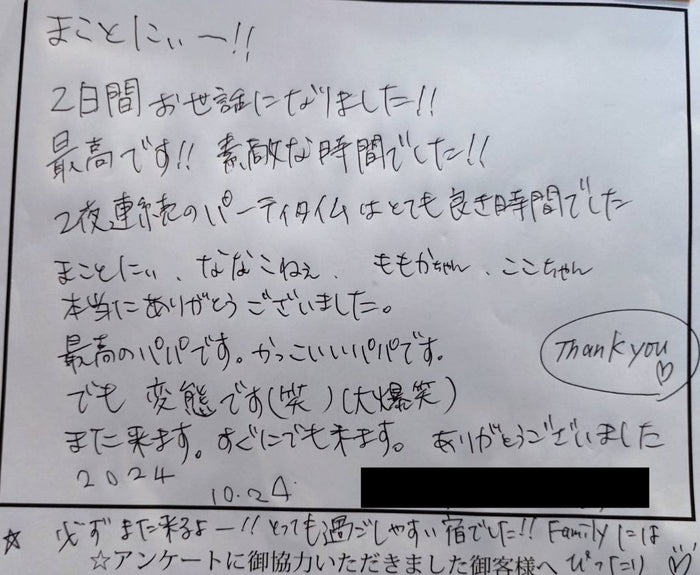 まことにぃー!!
2日間 お世話になりました!!
最高です!! 素敵な時間でした!!
2夜連続のパーティタイムはとても良き時間でした
まことにぃ、ななこねぇ、ももかちゃん、ここちゃん
本当にありがとうございました。
最高のパパです。かっこいいパパです。
Thank you♡
でも 変態です(笑)(大爆笑)
また来ます。すぐにでも来ます。ありがとうございました
2024
10.24
☆ 必ずまた来るよー!! とっても過ごしやすい宿でした!! Familyには
☆アンケートに御協力いただきました御客様へ ぴったり♡